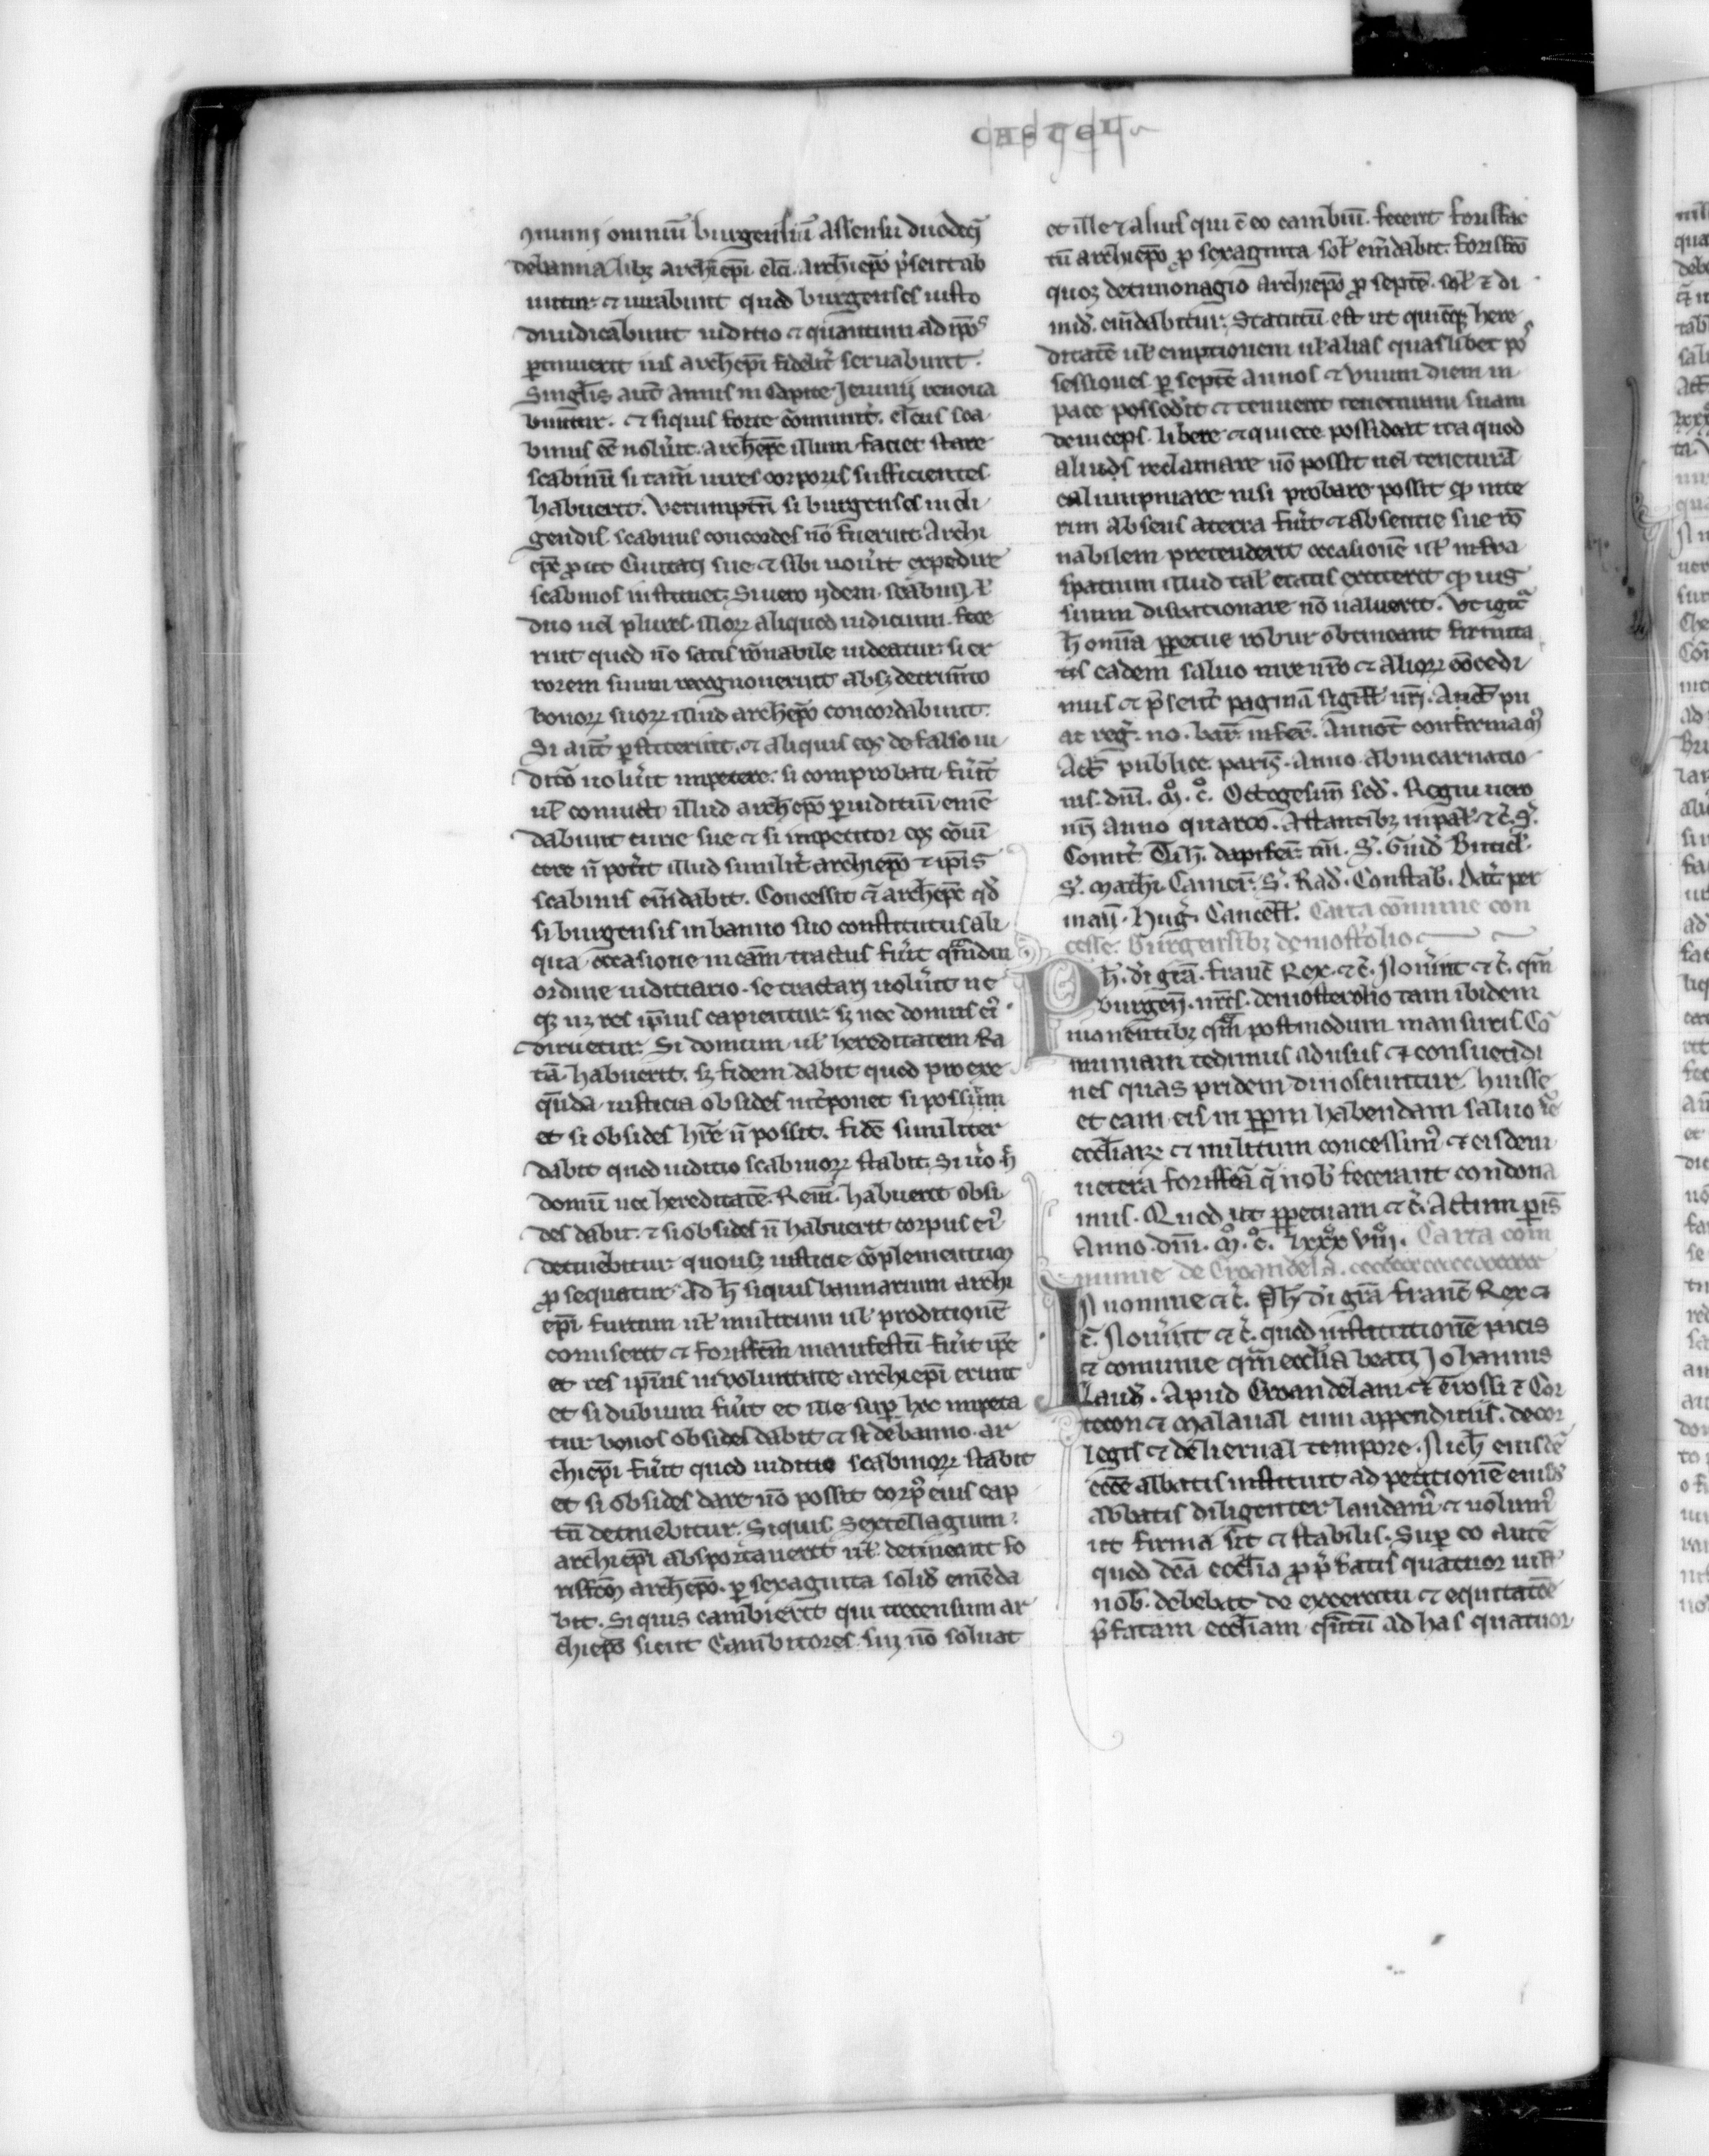 CASTEL
9muni omniũ burgensiũ assensu duodeci̅
de banna libꝫ archiep̅i elc̅i. Archiep̅o p̅sentab
untur. ⁊ iurabunt quod burgenses iusto
diiudicabunt iuditio ⁊ quantum ad ip̅os
ꝑtinuerit ius archiep̅i fidelit̅ seruabunt.
Singl̅is aut̅ annis in capite Jeiunij renoua
bunt̅ur. ⁊ siquis forte co̅munit̅. elc̅us sca
binus ee̅ nolu̅it. archiep̅c illum faciet stare
scabinũ si tam̅ uires corporis sufficientes
habuerit. Verumptn̅ si burgenses in eli
gendis scabinis concordes no̅ fuerint Archi
ep̅c ꝓut Ciuitati sue ⁊ sibi nou̅it expedire
scabinos instituet. Si uero ijdem scabinj. ł
duo uel plures illoꝝ aliquod iudicium fece
rint quod no̅ satis ro̅nabile uideatur. si er
rorem suum recognouerint absꝫ detrim̅to
bonoꝝ suoꝝ illud archiep̅o concordabunt.
Si aut̅ ꝑstiterint. ⁊ aliquis eos de falso iu
dito̅ uolu̅it impetere. si comprobati fu̅int
ul̅ conuicti illud archiep̅o ꝑ iuditiũ eme̅
dabunt curie sue ⁊ si impetitor eos co̅ui̅
cere n̅ pot̅it illud similit̅ archiep̅o ⁊ ip̅is
scabinis em̅dabit. Concessit ⁊ archiep̅c qd̅
si burgensis in banno suo constitutus ali
qua occasione in cam̅ tractus fu̅it q̅mdiu
ordine iuditiario se tractari uolu̅it ne
qꝫ res ip̅ius capientur. sꝫ nec domus ei̅
diruetur. Si domum ul̅ hereditatem Ra
ta̅ habuerit. sꝫ fidem dabit quod pro exe
que̅da iusticia obsides int̅ponet si possu̅nt
et si obsides hr̅e n̅ possit. fide̅ similiter
dabit quod iuditio scabinoꝝ stabit. Si u̅o h̅
domũ nec hereditate̅. Rem̅. habuerit obsi
des dabit. ⁊ si obsides n̅ habuerit corpus ei̅
detinebitur quousꝫ iusticie co̅plementum
ꝓsequatur. Ad h̅ siquis bannarium archi
ep̅i. furtum ul̅ multrum ul̅ proditione̅
comiserit ⁊ forisfc̅m manifestũ fu̅it ip̅e
et res ip̅ius in uoluntate archiep̅i erunt
et si dubium fu̅it et ille suꝑ hoc impeta
tur bonos obsides dabit ⁊ si de banno ar
chiep̅i fu̅it quod iuditio scabinoꝝ stabit
et si obsides dare no̅ possit corp̅ eius cap
tũ detinebitur. Siquis sextellagium
archiep̅i absportauerit ul̅ detineant fo
risfcm̅ archiep̅o. ꝑ sexaginta solid̅ eme̅da
bit. Siquis cambierit qui trecensum ar
chiep̅o sicut Cambitores sui no̅ soluat
et ille ⁊ alius qui c̅ eo cambiũ fecerit forisfac
tũ archiep̅o ꝓ sexaginta sol̅ em̅dabit. forisfc̅o
quoꝫ de tunonagio archiep̅o ꝓ septe̅. sol̅ ⁊ di
mid̅. em̅dabitur. Statutũ est ut quicũqꝫ here
ditate̅ ul̅ emptionem ul̅ alias quaslibet pos
sessiones ꝑ septe̅ annos ⁊ unum diem in
pace possed̅it ⁊ tenuerit teneturam suam
deinceps libere ⁊ quiete possideat ita quod
aliuds reclamare no̅ possit uel tenetura̅
calumpniare nisi probare possit ꝙ inte
rim absens a terra fu̅it ⁊ absentie sue ro̅
nabilem pretenderit occasione̅ ul̅ infra
spatium illud tal̅ etatis extiterit ꝙ ius
suum disrationare no̅ ualuerit. Vt igit̅
h̅ omi̅a ꝑpetue robur obtineant firmita
tis eadem saluo iure nr̅o ⁊ alioꝝ co̅cedi
mus ⁊ p̅sent̅ pagina̅ sigill̅ nr̅i. Auct̅ pu
at reg̅. no. bar̅. infer̅. Annot̅ confirmam9
Act̅ publice paris̅. Anno ab incarnatio
nis. dni̅. Mº. Cº. Octogesim̅ scd̅. Regni uero
nr̅i anno quarto. Astantibꝫ in pal̅. ⁊c̅. S̅.
Comit̅ Tih̅. dapifer̅ nr̅i. S̅. Guid̅ Buticl̅.
S̅. Mathi̅. Camer̅. S̅. Rad̅. Constab̅. Dat̅ per
man̅. Hug̅. Cancell̅. Carta co̅mune con
cesse. Burgensibꝫ de mostolio
Ph̅. di̅ gra̅. franc̅ Rex. ⁊c̅. Nou̅int ⁊c̅. qm̅
burgen̅. nr̅is. de mosterolio tam ibidem
manentibꝫ q̅m postmodum mansuris. Co̅
muniam tedimus ad usus ⁊ consuetudi
nes quas pridem dinoscuntur huisse
et eam eis in ꝑpm̅ habendam saluo iure
eccl̅iaꝝ ⁊ militum concessim9 ⁊ eisdem
uetera forisfc̅a q̅ nob̅ fecerant condona
mus. Quod ut ꝑpetuam ⁊c̅. Actum paris̅
Anno. dni̅. Mº. Cº. lxxxº viiiº. Carta com
munie de Croandela.
In nomine ⁊c̅. Ph̅ di̅ gra̅ franc̅ Rex ⁊
c̅. Nou̅int ⁊c̅. quod institutione̅ pacis
⁊ comunie qm̅ eccl̅ia beati Johannis
laud̅. Apud Croandelam ⁊ Trossi ⁊ Cor
tecon ⁊ Malaual cum appenditiis. de cor
legis ⁊ de lierual tempore Nich̅ eiusde̅
eccl̅e abbatis instituit ad petitione̅ eiusd̅
abbatis diligenter laudam9 ⁊ uolum9
ut firma sit ⁊ stabilis. Suꝑ eo aute̅
quod dc̅a eccl̅ia ꝓ p̅fatis quatuor uill̅
nob̅. debebat de exercitu ⁊ equitatio̅e
p̅fatam eccl̅iam q̅ntũ ad has quatuor